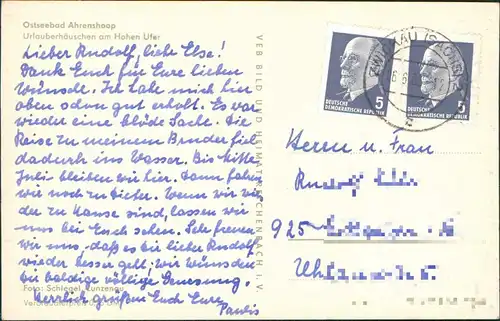 Ostseebad Ahrenshoop
Urlauberhäuschen am Hohen Ufer
Lieber Rudolf, liebe Else!
Dank Euch für Eure lieben
Wünsche. Ich habe mich hin
oben schon gut erholt. Es war
wieder eine blöde Sache. Die
Reise zu meinem Bruder fiel
dadurch ins Wasser. Bis Mitte
Juli bleiben wir hier. Dann fahren
wir noch zu Dieter. Wenn wir wie
der zu Hause sind, lassen wir
uns bei Euch sehen. Sehr freuen
wir uns, daß es Dir lieber Rudolf
wieder besser geht; wir wünschen
Dir baldige völlige Genesung.
Herzlich grüßen Euch Eure
Paulis
Foto: Schlegel, Kunzenau
VEB BILD UND HEIMAT REICHENBACH I. V.
ZWICKAU (SACHS)
DEUTSCHE
DEMOKRATISCHE REPUBLIK
5
DEUTSCHE
DEMOKRATISCHE REPUBLIK
5
Herrn u. Frau
Rudolf
925